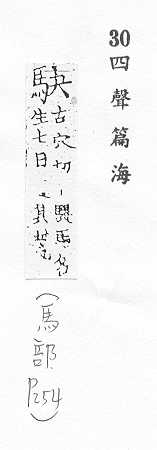 30 四聲篇海
駃
古穴切丨騠馬名
生七日其
(馬部 P254)